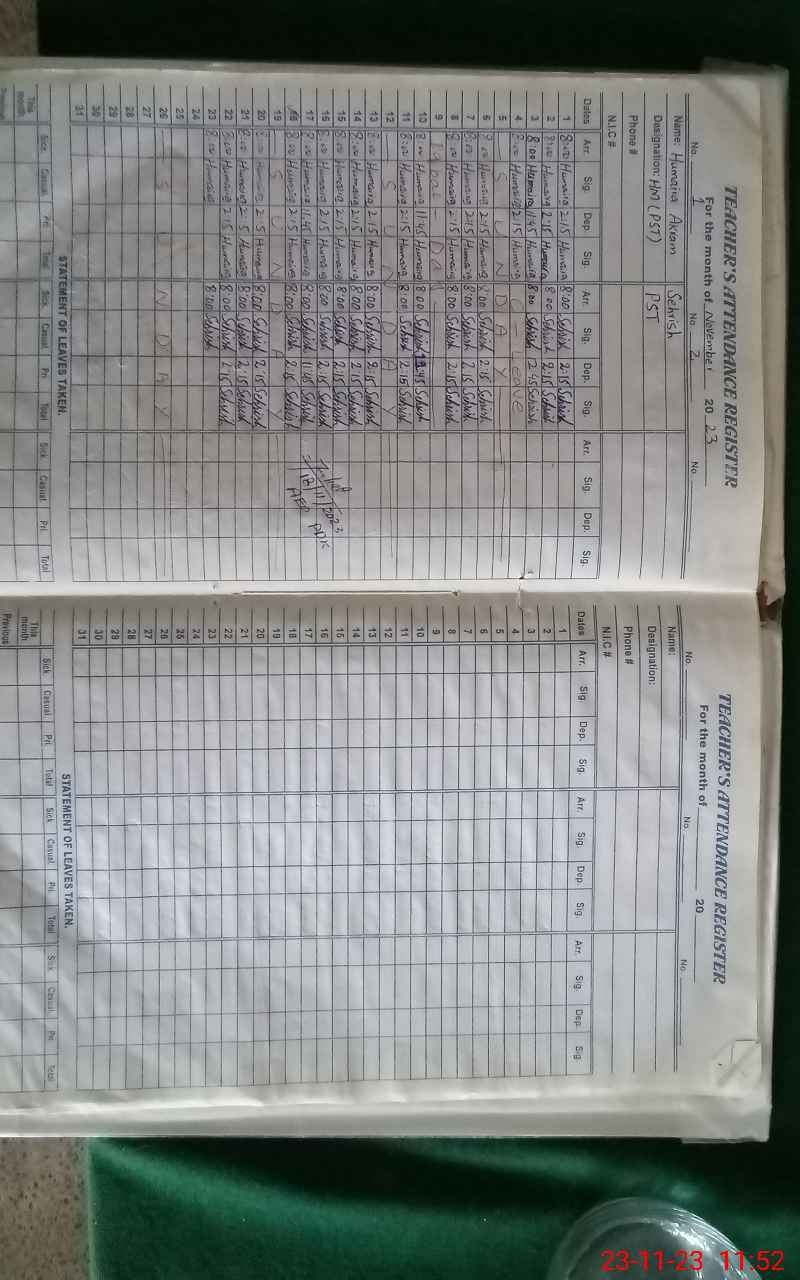 TEACHER'S ATTENDANCE REGISTER
For the month of November 2023
No. 1 No. 2 No.
Name: Humaira Akram Sehrish
Designation: HM (PST) PST
Phone #
N.I.C #
Dates Arr. Sig. Dep. Sig. Arr. Sig. Dep. Sig. Arr. Sig. Dep. Sig.
1 8:00 Humaira 2:15 Humaira 8:00 Sehrish 2:15 Sehrish
2 8:00 Humaira 2:15 Humaira 8:00 Sehrish 2:15 Sehrish
3 8:00 Humaira 11:45 Humaira 8:00 Sehrish 2:45 Sehrish
4 8:00 Humaira 2:15 Humaira C - Leave
5 S U N D A Y
6 8:00 Humaira 2:15 Humaira 8:00 Sehrish 2:15 Sehrish
7 8:00 Humaira 2:15 Humaira 8:00 Sehrish 2:15 Sehrish
8 8:00 Humaira 2:15 Humaira 8:00 Sehrish 2:15 Sehrish
9 Iqbal - Day
10 8:00 Humaira 11:45 Humaira 8:00 Sehrish 11:45 Sehrish
11 8:00 Humaira 2:15 Humaira 8:00 Sehrish 2:15 Sehrish
12 S U N D A Y
13 8:00 Humaira 2:15 Humaira 8:00 Sehrish 2:15 Sehrish
14 8:00 Humaira 2:15 Humaira 8:00 Sehrish 2:15 Sehrish
15 8:00 Humaira 2:15 Humaira 8:00 Sehrish 2:15 Sehrish
16 8:00 Humaira 2:15 Humaira 8:00 Sehrish 2:15 Sehrish
17 8:00 Humaira 11:45 Humaira 8:00 Sehrish 11:45 Sehrish
18 8:00 Humaira 2:15 Humaira 8:00 Sehrish 2:15 Sehrish
18/11/2023
AEO PDK
19 S U N D A Y
20 8:00 Humaira 2:15 Humaira 8:00 Sehrish 2:15 Sehrish
21 8:00 Humaira 2:15 Humaira 8:00 Sehrish 2:15 Sehrish
22 8:00 Humaira 2:15 Humaira 8:00 Sehrish 2:15 Sehrish
23 8:00 Humaira 8:00 Sehrish
24
25
26 S U N D A Y
27
28
29
30
31
STATEMENT OF LEAVES TAKEN.
Sick Casual Pri. Total Sick Casual Pri Total Sick Casual Pri. Total
This month
TEACHER'S ATTENDANCE REGISTER
For the month of 20
No. No. No.
Name:
Designation:
Phone #
N.I.C #
Dates Arr. Sig Dep. Sig. Arr. Sig. Dep. Sig. Arr. Sig. Dep. Sig.
1
2
3
4
5
6
7
8
9
10
11
12
13
14
15
16
17
18
19
20
21
22
23
24
25
26
27
28
29
30
31
STATEMENT OF LEAVES TAKEN.
Sick Casual Pri. Total Sick Casual Pri Total Sick Casual Pri Total
This month
Previous
23-11-23 11:52